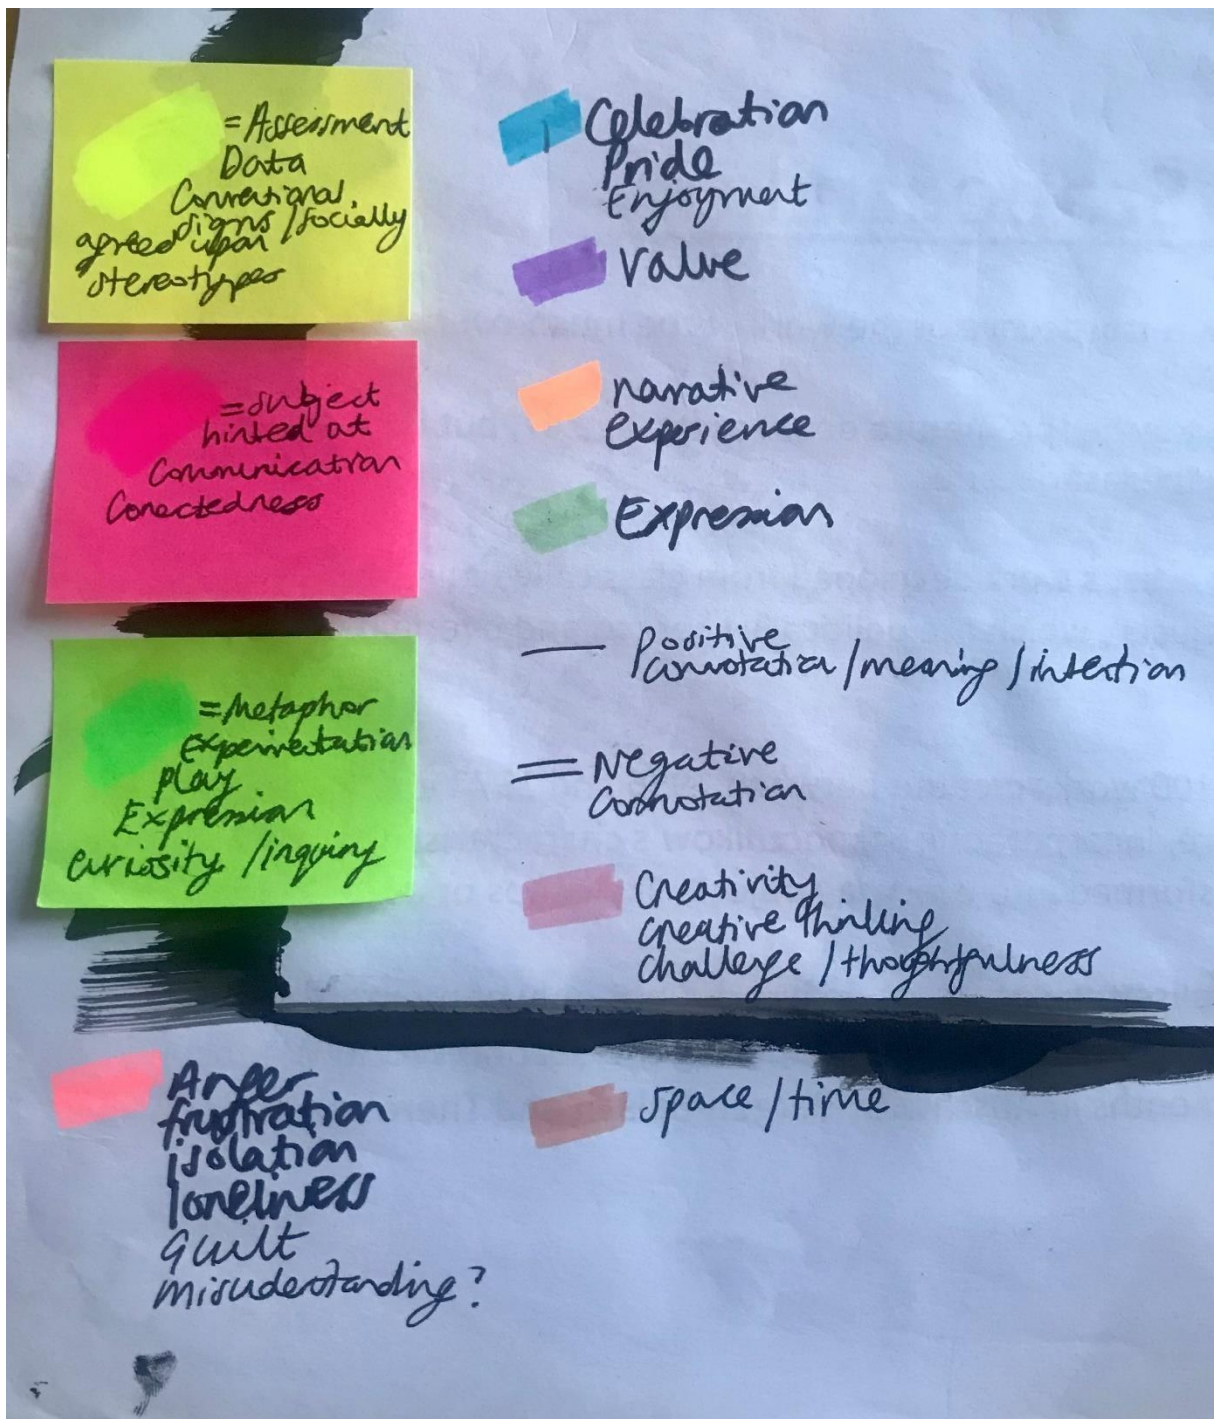 = Assessment
Data
Conventional
signs / socially
agreed upon
stereotypes
= subject
hinted at
Communication
Conectedness
= Metaphor
Experimentation
play
Expression
curiosity / inquiry
Celebration
Pride
Enjoyment
Value
narrative
experience
Expression
Positive
connotation / meaning / intention
Negative
connotation
Creativity
creative thinking
challenge / thoughtfulness
Anger
frustration
isolation
loneliness
Guilt
misuderstanding?
space / time